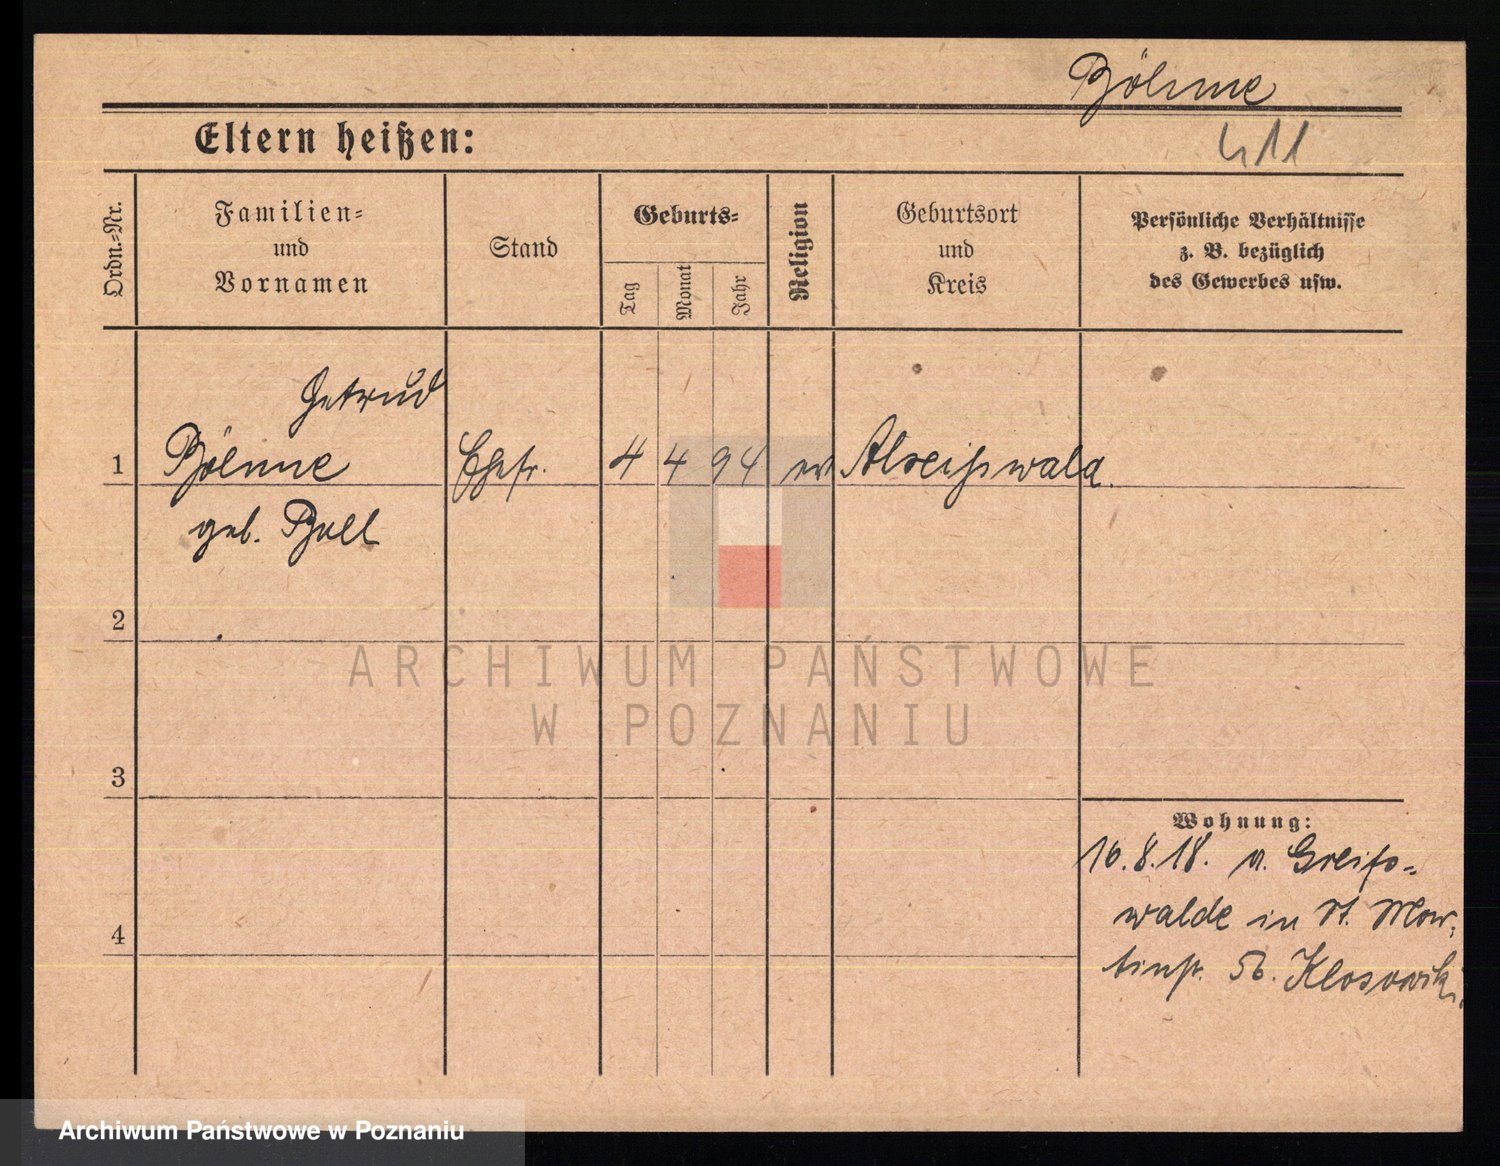 Böhme
411
Eltern heißen:
Ordn.=Nr.
Familien=
und
Vornamen
Stand
Geburts=
Tag
Monat
Jahr
Religion
Geburtsort
und
Kreis
Persönliche Verhältnisse
z. B. bezüglich
des Gewerbes usw.
Getrud
1 Böhme Ehefr. 4 4 94 ev
geb. Boll
2
3
4
Wohnung:
16.8.18. v. Greifs=
walde in St. Mar=
tinstr. 56.
ARCHIWUM PAŃSTWOWE
W POZNANIU
Archiwum Państwowe w Poznaniu